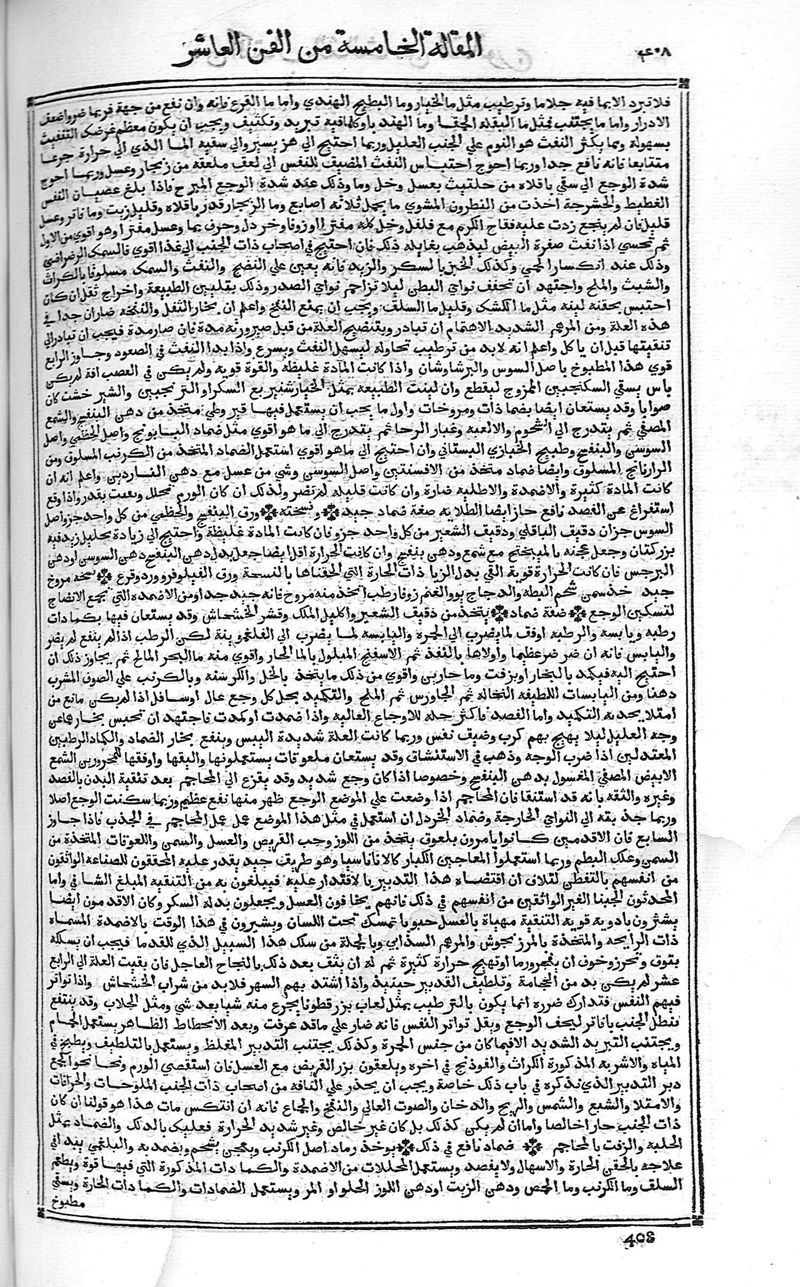 المقالة الخامسة من الفن العاشر
٤٠٨
فلا تبرد الا بما فيه جلا ما وترطيب مثل ما الخيار وما البطيخ الهندي واما ما القرع فانه وان نفع من جهة فربما ضر واضعف
الادرار واما ما يجتنب فمثل ما البقلة الحمقا وما الهندبا وكلما فيه تبريد وتكثيف ويجب ان يكون معظم غرضك التنفيث
بسهولة ومما يكثر النفث هو النوم علي الجنب العليل وربما احتيج الي هز يسير والي سقيه الما الذي الي حرارة جرعا
متتابعا فانه نافع جدا وربما احوج احتباس النفث المضيق للنفس الي لعق ملعقة من زنجار وعسل وربما احوج
شدة الوجع الي سقي باقلاه من حلتيت بعسل وخل وما وذلك عند شدة الوجع المبرح فاذا بلغ عصيان النفس
الغطيط والحشرجة اخذت من النطرون المشوي ما يحمل ثلاثة اصابع وما الزنجار قدر باقلاه وقليل زيت وما فاتر وعسل
قليل فان لم ينجع زدت عليه فقاح الكرم مع فلفل وخل كله مفترا او زوفا وخردل وحرف بما وعسل مفترا وهو اقوي من الاول
ثم تحسي اذا نفث صفرة البيض ليذهب بغايلة ذلك فان احتيج في اصحاب ذات الجنب الي غذا اقوي فالسمك الرضراضي
وذلك عند انكسار الحمي وكذلك الخبز بالسكر والزبد فانه يعين علي النضج والنفث والسمك مسلوقا بالكراث
والشبث والملح واجتهد ان تجفف نواي البطن ليلا تزاحم نواي الصدر وذلك بتليين الطبيعة واخراج ثفل ان كان
احتبس بحقنة لينة مثل ما الكشك وقليل ما السلق ويجب ان يمنع النفخ واعلم ان بخار الثفل والنفخة ضاران جدا في
هذه العلة ومن المرهم الشديد الاهتمام ان تبادر وتنضج العلة من قبل صيرورته مدة فان صار مدة فيجب ان تبادر الي
تنقيتها قبل ان ياكل واعلم انه لابد من ترطيب تحاوله ليسهل النفث ويسرع واذا بدا النفث في الصعود وجاوز الرابع
قوي هذا المطبوخ باصل السوس والبرشاوشان واذا كانت المادة غليظة والقوة قوية ولم يكن في العصب افة لم يكن
باس بسقي السكنجبين الممزوج ليقطع وان لينت الطبيعة بمثل الخيارشنبر مع السكر او الترنجبين والشيرخشت كان
صوابا وقد يستعان ايضا بضمادات ومروخات واول ما يجب ان يستعمل فيها قيروطي متخذ من دهن البنفسج والشمع
المصفي ثم يتدرج الي الشحوم والالعبة وغبار الرحا ثم يتدرج الي ما هو اقوي مثل ضماد البابونج واصل الخطمي واصل
السوسي والبنفسج وطبيخ الخبازي البستاني وان احتيج الي ما هو اقوي استعمل الضماد المتخذ من الكرنب المسلوق ومن
الرازيانج المسلوق وايضا ضماد متخذ من الافسنتين واصل السوسي وشي من عسل مع دهن الناردين واعلم انه ان
كانت المادة كثيرة والاضمدة والاطلية ضارة وان كانت قليلة لم تضر ولذلك ان كان الورم قد وقع
استفراغ عن الفصد نافع جاز ايضا الطلا به صفة ضماد جيد ونسخته ورق البنفسج والخطمي من كل واحد جزو اصل
السوس جزان دقيق الباقلي ودقيق الشعير من كل واحد جزو فان كانت المادة غليظة واحتيج الي زيادة تحليل زيد فيه
بزر كتان وجعل عجنه بالميبختج مع شمع ودهن بنفسج وان كانت الحرارة اقل ايضا جعل بدل دهن البنفسج دهن السوسي او دهن
النرجس فان كانت الحرارة قوية القي بدل الزيادات الحارة التي الحقناها بالنسخة ورق النيلوفر وورد وقرع نسخة مروخ
جيد خذ سمي شحم البط والدجاج بوو الغنم زوفا رطب اتخذ منه مروخ فانه جيد جدا ومن الاضمدة التي تجمع الانضاج
لتسكين الوجع صفة ضماد يتخذ من دقيق الشعير واكليل الملك وقشر الخشخاش وقد يستعان فيها بكمادات
رطبة ويابسة والرطبة اوفق لما يضرب الي الحمرة واليابسة لما يضرب الي الفلغمونية لكن الرطب اذا لم ينفع لم يضر
واليابس فانه ان ضر ضر عظيما واولاها بالنفذ ثم الاسفنج المبلول بالما الحار واقوي منه ما البحر المالح ثم يجاوز ذلك ان
احتيج اليه فيكمد بالبخار او بزفت وما حارين واقوي من ذلك ما يتخذ بالخل والكرسنة وبالكرنب علي الصوف المشرب
دهنا ومن اليابسات اللطيفة النخالة ثم الجاورس ثم الملح والتكميد يحلل كل وجع عال او سافل اذا لم يكن مانع من
امتلا يجذبه التكميد واما الفصد فاكثر حله للاوجاع العالية واذا ضمدت او كمدت فاجتهد ان تحبس بخارهما عن
وجه العليل ليلا يهيج بهم كرب وضيق نفس وربما كانت العلة شديدة اليبس وينفع بخار الضماد والكماد الرطبين
المعتدلين اذا ضرب الوجه وذهب في الاستنشاق وقد يستعان بلعوقات يستعملونها واليقها واوفقها للمحرورين الشمع
الابيض المصفي المغسول بدهن البنفسج وخصوصا اذا كان وجع شديد وقد يفزع الي المحاجم بعد تنقية البدن بالفصد
وغيره والثقة بانه قد استنقا فان المحاجم اذا وضعت علي الموضع الوجع ظهر منها نفع عظيم وربما سكنت الوجع اصلا
وربما جذبته الي النواي الخارجة وضماد الخردل ان استعمل في مثل هذا الموضع عمل عمل المحاجم في الجذب فاذا جاوز
السابع فان الاقدمين كانوا يامرون بلعوق يتخذ من اللوز وحب القريص والعسل والسمن واللعوقات المتخذة من
السمن وعلك البطم وربما استعملوا المعاجين الكبار كالاناناسيا وهو طريق جيد يقدر عليه المحققون للصناعة الواثقون
من انفسهم بالتفطن لتلاف ان اقتضاه هذا التدبير بالاقتدار عليه فيبلغون به من التنقية المبلغ الشافي واما
المحدثون الجبنا الغير الواثقين من انفسهم في ذلك فانهم يخافون العسل ويجعلون بدله السكر وكان الاقدمون ايضا
يشيرون بادوية قوية التنقية مهياة بالعسل حبوبا تمسك تحت اللسان ويشيرون في هذا الوقت بالاضمدة المسماه
ذات الرايحة والمتخذة بالمرزنجوش والمرهم السذابي وبالجملة من سلك هذا السبيل الذي للقدما فيجب ان يسلكه
بتوق وتحرز وخوف ان ينفجر ورما او تهيج حرارة كثيرة ثم له ان يثق بعد ذلك بالنجاح العاجل فان بقيت العلة الي الرابع
عشر لم يكن بد من الحجامة وتلطيف التدبير حينيذ واذا اشتد بهم السهر فلابد من شراب الخشخاش واذا تواتر
فيهم النفس فتدارك ضرره انما يكون بالترطيب بمثل لعاب بزرقطونا يجرع منه شيا بعد شي ومثل الجلاب وقد ينتفع
بنطل الجنب بفاتر ليخف الوجع ويقل تواتر النفس فانه ضار علي ما قد عرفت وبعد الانحطاط الظاهر يستعمل الحمام
ويجتنب التبريد الشديد الا فيما كان من جنس الحمرة وكذلك يجتنب التدبير المغلظ ويستعمل بالتلطيف ويطبخ في
المياه والاشربة المذكورة الكراث والفوذنج في اخره ويلعقون بزر القريص مع العسل فان استقصي الورم ونحا نحو الجمع
دبر التدبير الذي نذكره في باب ذلك خاصة ويجب ان يحذر علي الناقه من اصحاب ذات الجنب الملوحات والحرافات
والامتلا والشبع والشمس والريح والدخان والصوت العالي والنفخ والجماع فانه ان انتكس مات هذا هو قولنا ان كان
ذات الجنب حارا خالصا واما ان لم يكن كذلك بل كان غير خالص وغير شديد الحرارة فعليك بالدلك والضماد بمثل
الحلبة والزفت بالمحاجم ضماد نافع في ذلك يوخذ رماد اصل الكرنب ويعجن بشحم ويضمد به والبلغمي يبدا في
علاجه بالحقن الحارة والاسهال ولا يفصد ويستعمل المحللات من الاضمدة والكمادات المذكورة التي فيها قوة ويطعم
السلق وما الكرنب وما الحمص ودهن الزيت او دهن اللوز الحلو او المر ويستعمل الضمادات والكمادات الحارة ويسقي
مطبوخ
408